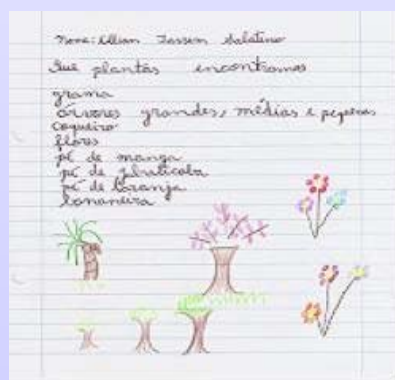 Nome: Lilian Jassem Salatino
Que plantas encontramos
grama
árvores grandes, médias e pequenas
coqueiro
flores
pé de manga
pé de jabuticaba
pé de laranja
bananeira